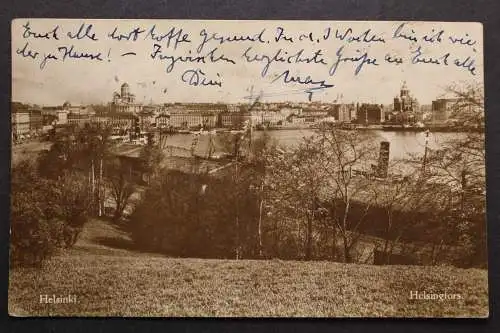 Euch Alle dort hoffe gesund. In ca. 3 Wochen bin ich wie-
der zu Hause! – Inzwischen herzlichste Grüße an Euch alle.
Dein Max
Helsinki
Helsingfors.